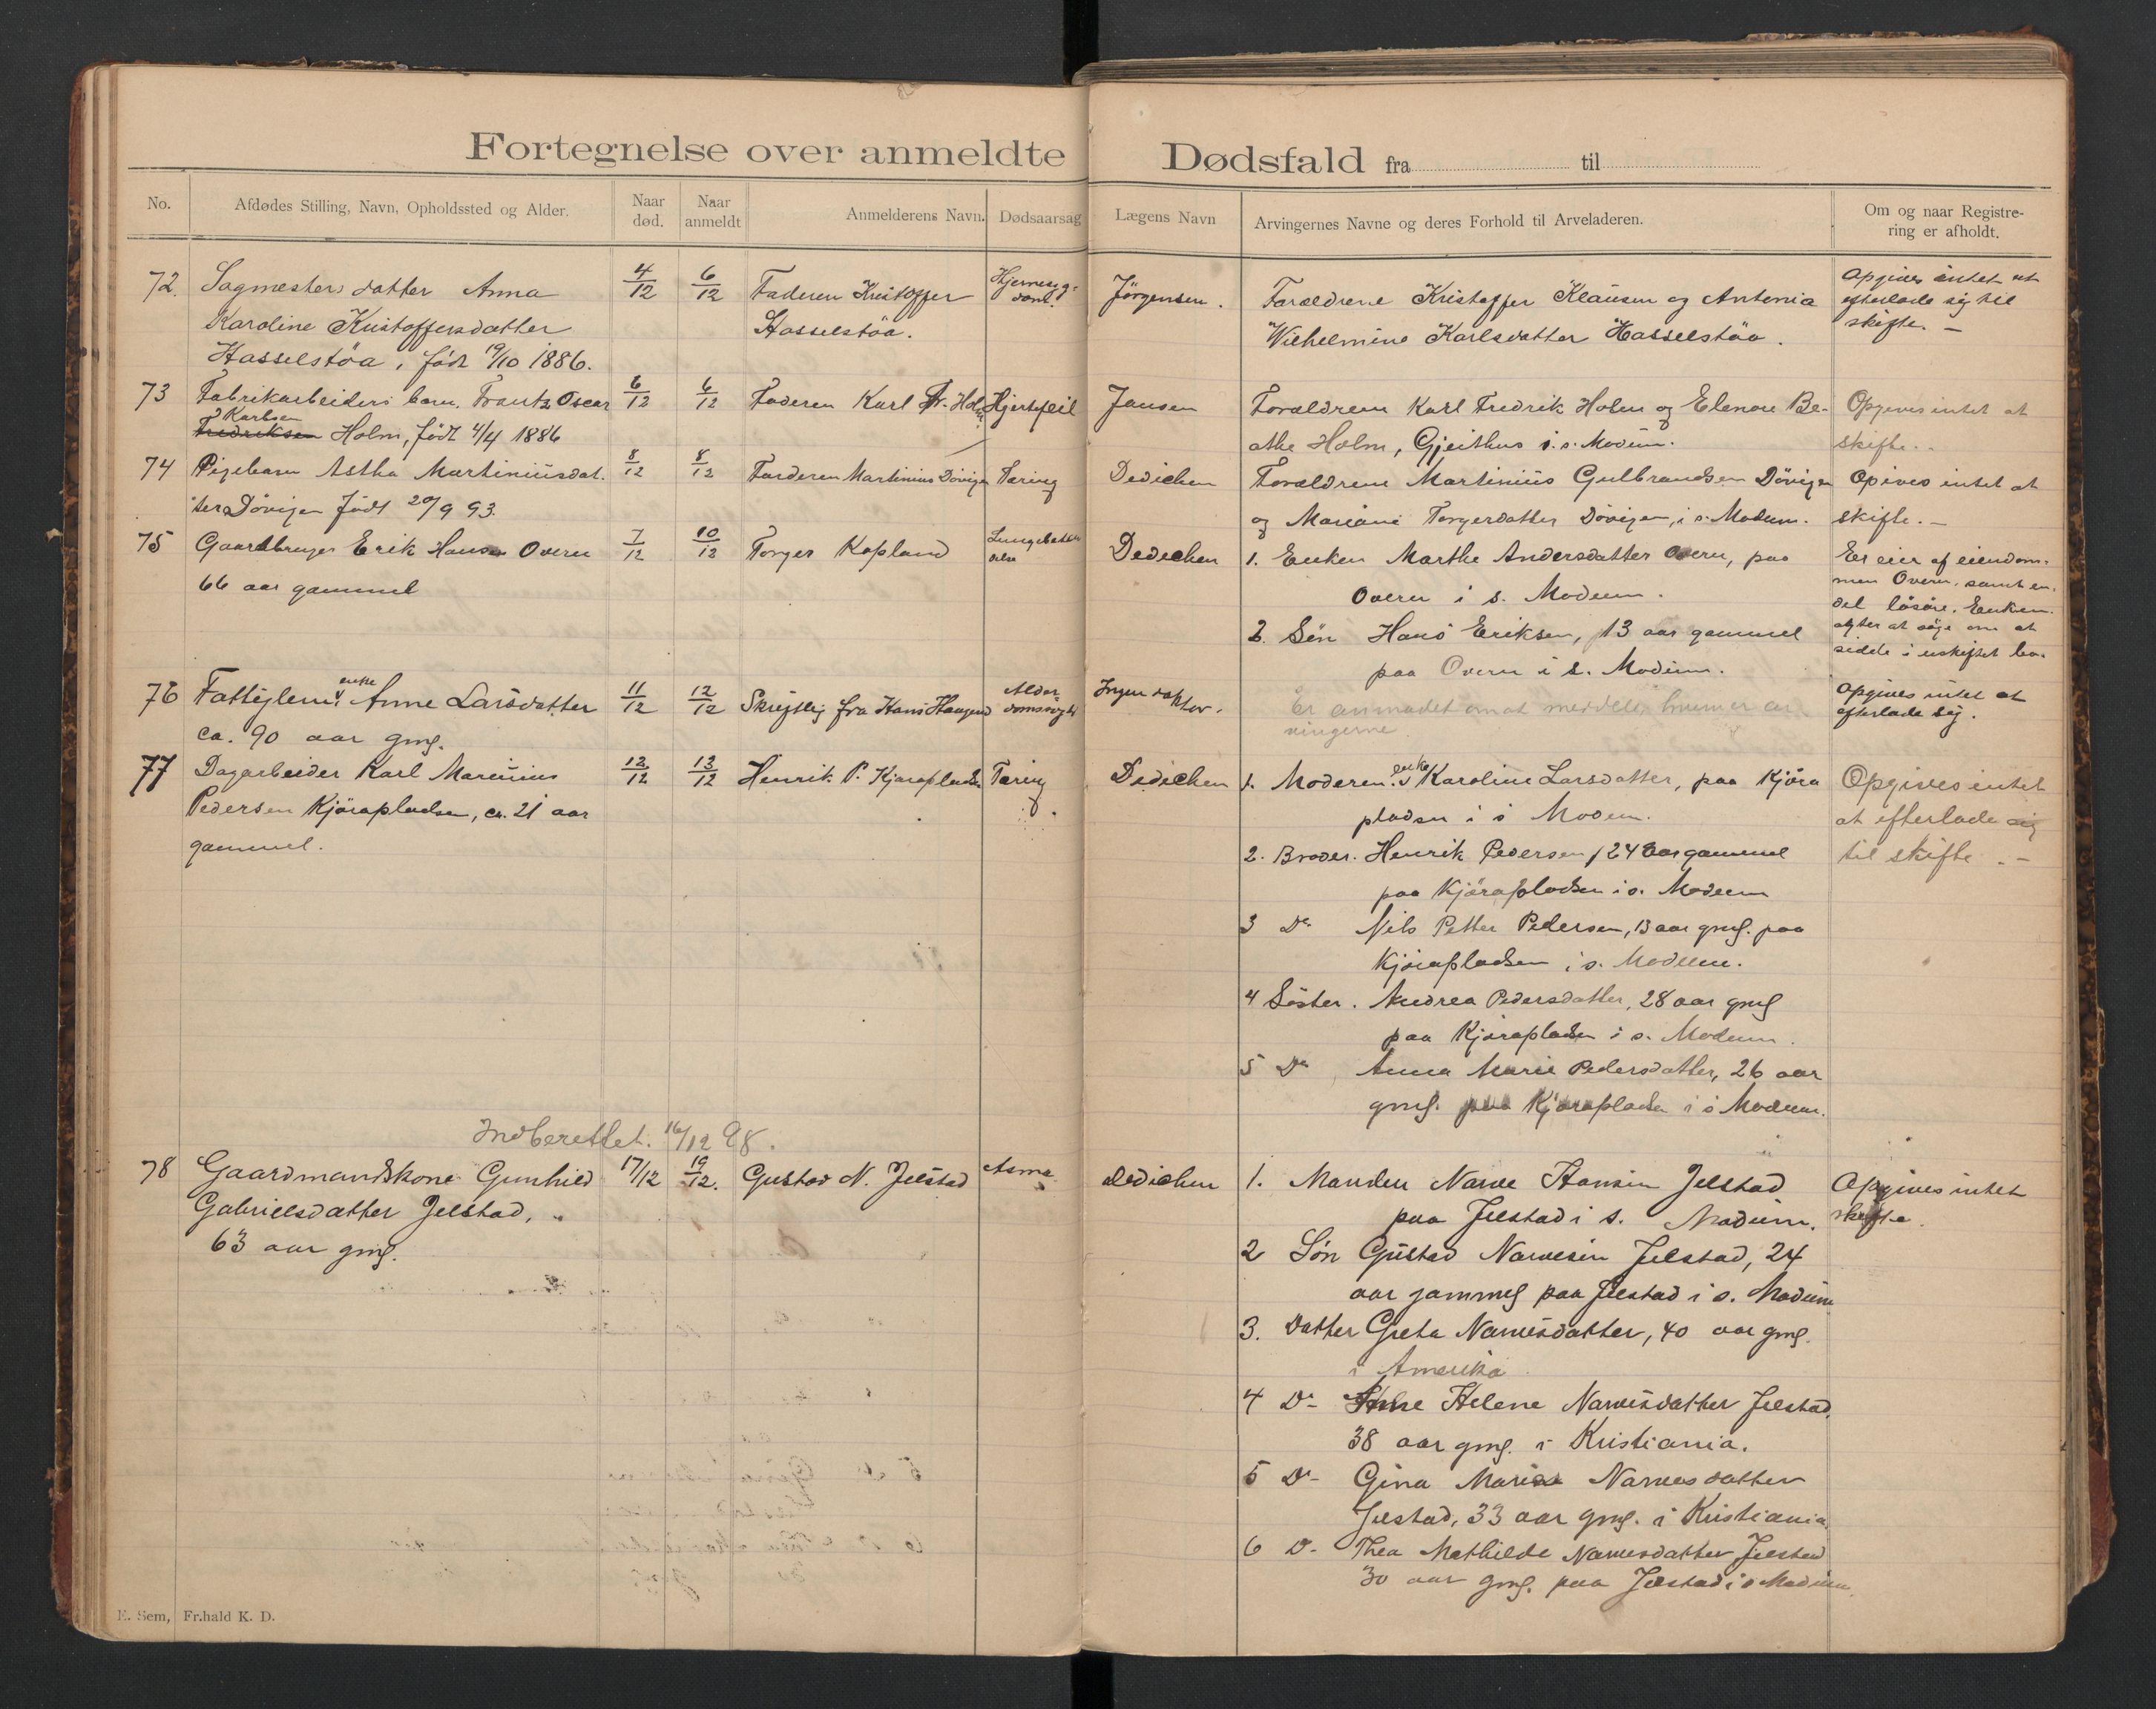 Fortegnelse over anmeldte Dødsfald fra til
No.
Afdødes Stilling, Navn, Opholdssted og Alder.
Naar død.
Naar anmeldt
Anmelderens Navn.
Dødsaarsag
Lægens Navn
Arvingernes Navne og deres Forhold til Arveladeren.
Om og naar Registre-
ring er afholdt.
72. Sagmesters datter Anna
Karoline Kristoffersdatter
Hasselstöa, født 19/10 1886.
4/12 6/12
Faderen Kristoffer
Hasselstöa.
Hjernesyg-
dom.
Jörgensen.
Forældrene Kristoffer Klausen og Antonia
Wilhelmine Karlsdatter Hasselstöa.
Opgives intet at
efterlade sig til
skifte. –
73 Fabrikarbeiders barn. Frantz Oscar
Karlsen
Fredriksen Holm, født 4/4 1886
6/12 6/12
Faderen Karl Fr. Holm
Hjertefeil
Jansen
Forældrene Karl Fredrik Holm og Elenore Be-
athe Holm, Gjeithus i s. Modum.
Opgives intet at
skifte.
74 Pigebarn Astha Martiniusdat-
ter Dövigen født 20/9 93.
8/12 8/12
Faderen Martinius Dövigen
Tæring
Dedichen
Forældrene Martinius Gulbrandsen Dövigen
og Mariane Torgersdatter Dövigen, i s. Modum.
Opives intet at
skifte. –
75 Gaardbruger Erik Hansen Overn
66 aar gammel
7/12 10/12
Torger Kopland
Dedichen
1. Enken Marthe Andersdatter Overn, paa
Overn i s. Modum.
2. Sön Hans Eriksen, 13 aar gammel
paa Overn i s. Modum.
Er eier af eiendom-
men Overn, samt en
del lösöre. Enken
agter at söge om at
sidde i uskiftet bo.
76 Fattiglem,
enke
Anne Larsdatter
ca. 90 aar gml.
11/12 12/12
Skriftlig fra Hans Haugen
Alder-
domssvaghed
Ingen doktor.
Er anmodet om at meddele hvem er ar-
vingerne
Opgives intet at
efterlade sig.
77 Dagarbeider Karl Marinius
Pedersen Kjörapladsen, ca. 21 aar
gammel.
12/12 13/12
Henrik P. Kjörapladsen
Tæring
Dedichen
1. Moderen enke Karoline Larsdatter, paa Kjöra
pladsen i s Modum.
2. Broder. Henrik Pedersen, 24 aar gammel
paa Kjörapladsen i s. Modum
3 Do Nils Petter Pedersen, 13 aar gml. paa
Kjörapladsen i s. Modum.
4 Söster. Andrea Pedersdatter, 28 aar gml
paa Kjörapladsen i s. Modum.
5 Do Anna Marie Pedersdatter, 26 aar
gml. paa Kjörapladsen i s Modum.
Opgives intet
at efterlade sig
til skifte. –
Indberettet. 16/12 98.
78 Gaardmandskone Gunhild
Gabrielsdatter Jelstad,
63 aar gml.
17/12 19/12.
Gustav N. Jelstad
Asma
Dedichen
1. Manden Narve Hansen Jelstad
paa Jelstad i s. Modum.
2 Sön Gustav Narvesen Jelstad, 24
aar gammel paa Jelstad i s. Modum
3. Datter Greta Narvesdatter, 40 aar gml.
i Amerika
4 Do Anne Helene Narvesdatter Jelstad,
38 aar gml. i Kristiania.
5 Do Gina Marie Narvesdatter
Jelstad, 33 aar gml. i Kristiania.
6 Do Thea Mathilde Narvesdatter Jelstad
30 aar gml. paa Jelstad i s Modum.
Opgives intet
skifte.
E. Sem, Fr.hald K. D.